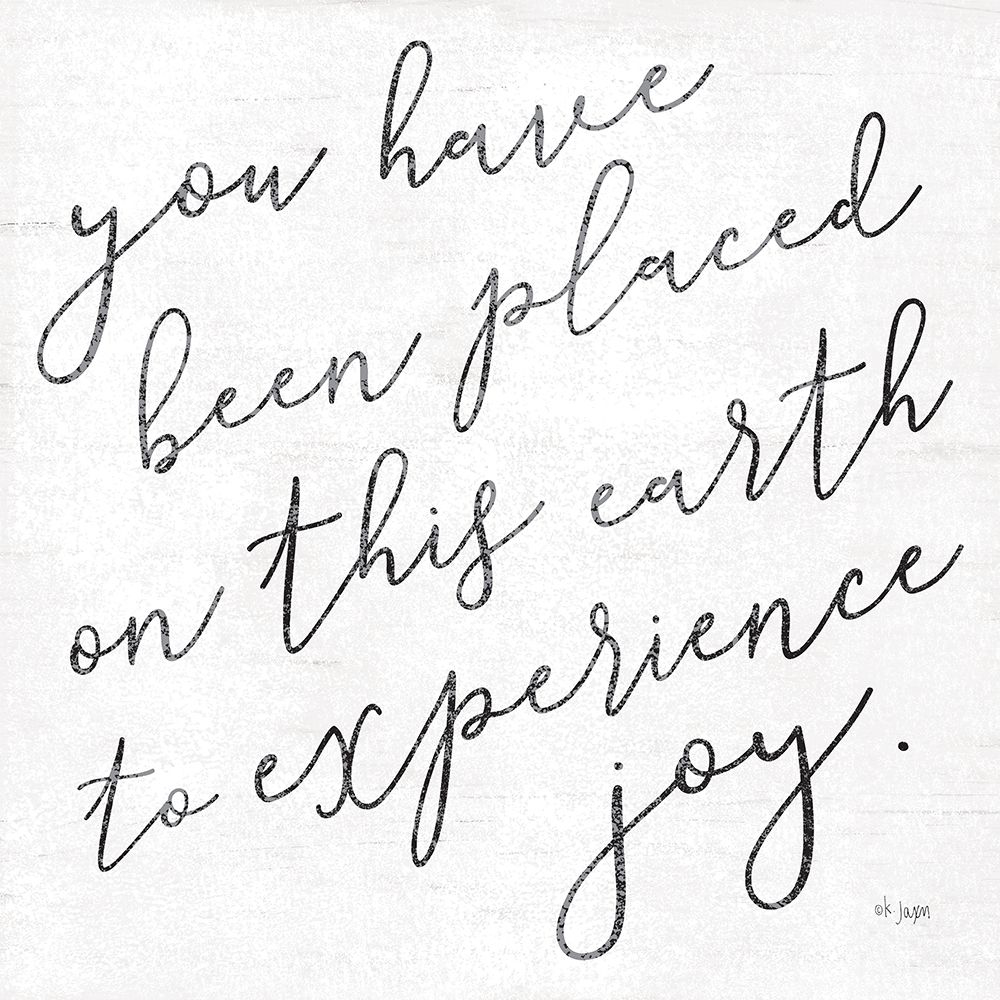 you have
been placed
on this earth
to experience
joy.
©K. Jaxn